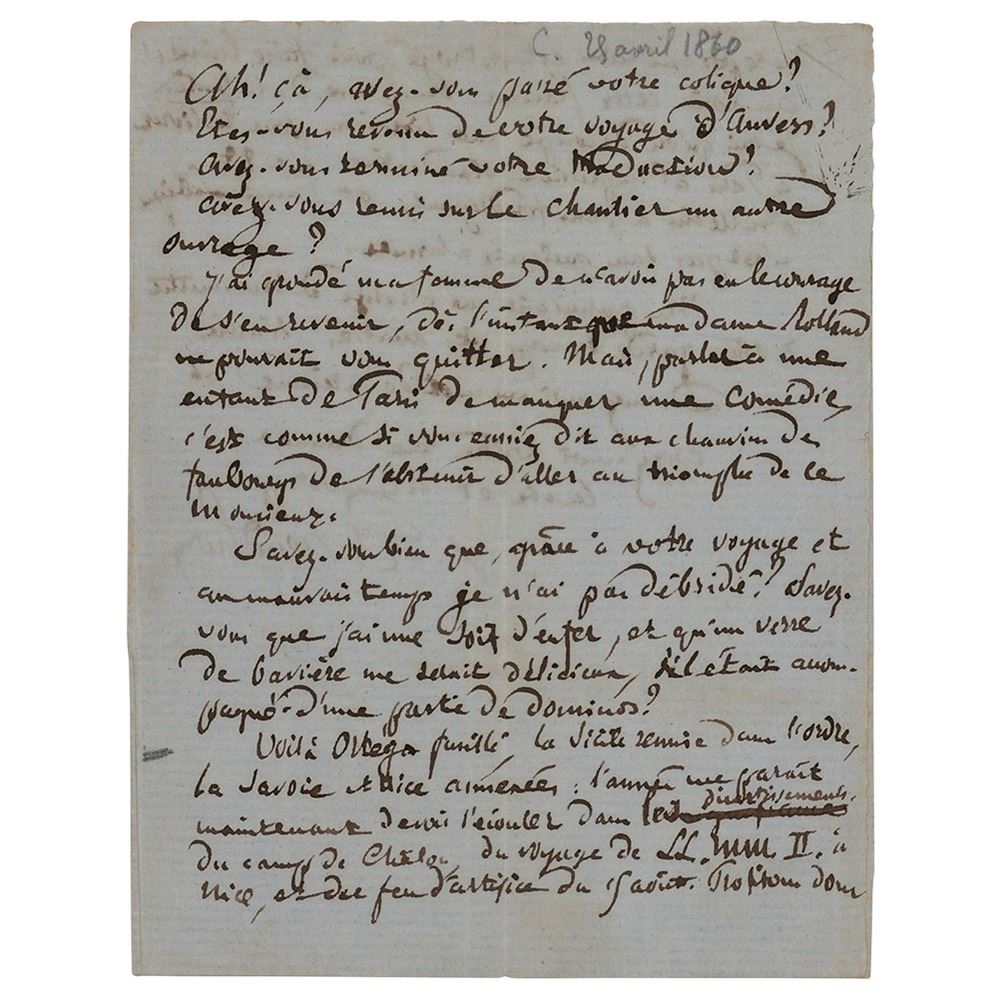 C. 25 avril 1860
Ah! çà, avez-vous passé votre colique?
Etes-vous revenu de votre voyage d'Anvers?
avez-vous terminé votre traduction?
avez-vous remis sur le chantier un autre
ouvrage?
J'ai grondé ma femme de n'avoir pas eu le courage
de s'en revenir, dès l'instant que madame Rolland
ne pouvait vous quitter. Mais, parler à une
enfant de Paris de manquer une Comédie,
c'est comme si vous eussiez dit aux chauvins des
faubourgs de s'abstenir d'aller au triomphe de ce
Monsieur.
Savez-vous bien que, grâce à votre voyage et
au mauvais temps je n'ai pas débridé? Savez-
vous que j'ai une soif d'enfer, et qu'un verre
de Bavière me serait délicieux, s'il était accom-
pagné d'une partie de dominos?
Voilà Ortega fusillé, la Sicile remise dans l'ordre,
la Savoie et Nice annexées: l'année me paraît
maintenant devoir s'écouler dans les divertissements
du camp de Châlons, du voyage de LL. MM. II. à
Nice, et des feu d'artifice du 15 août. Profitons donc